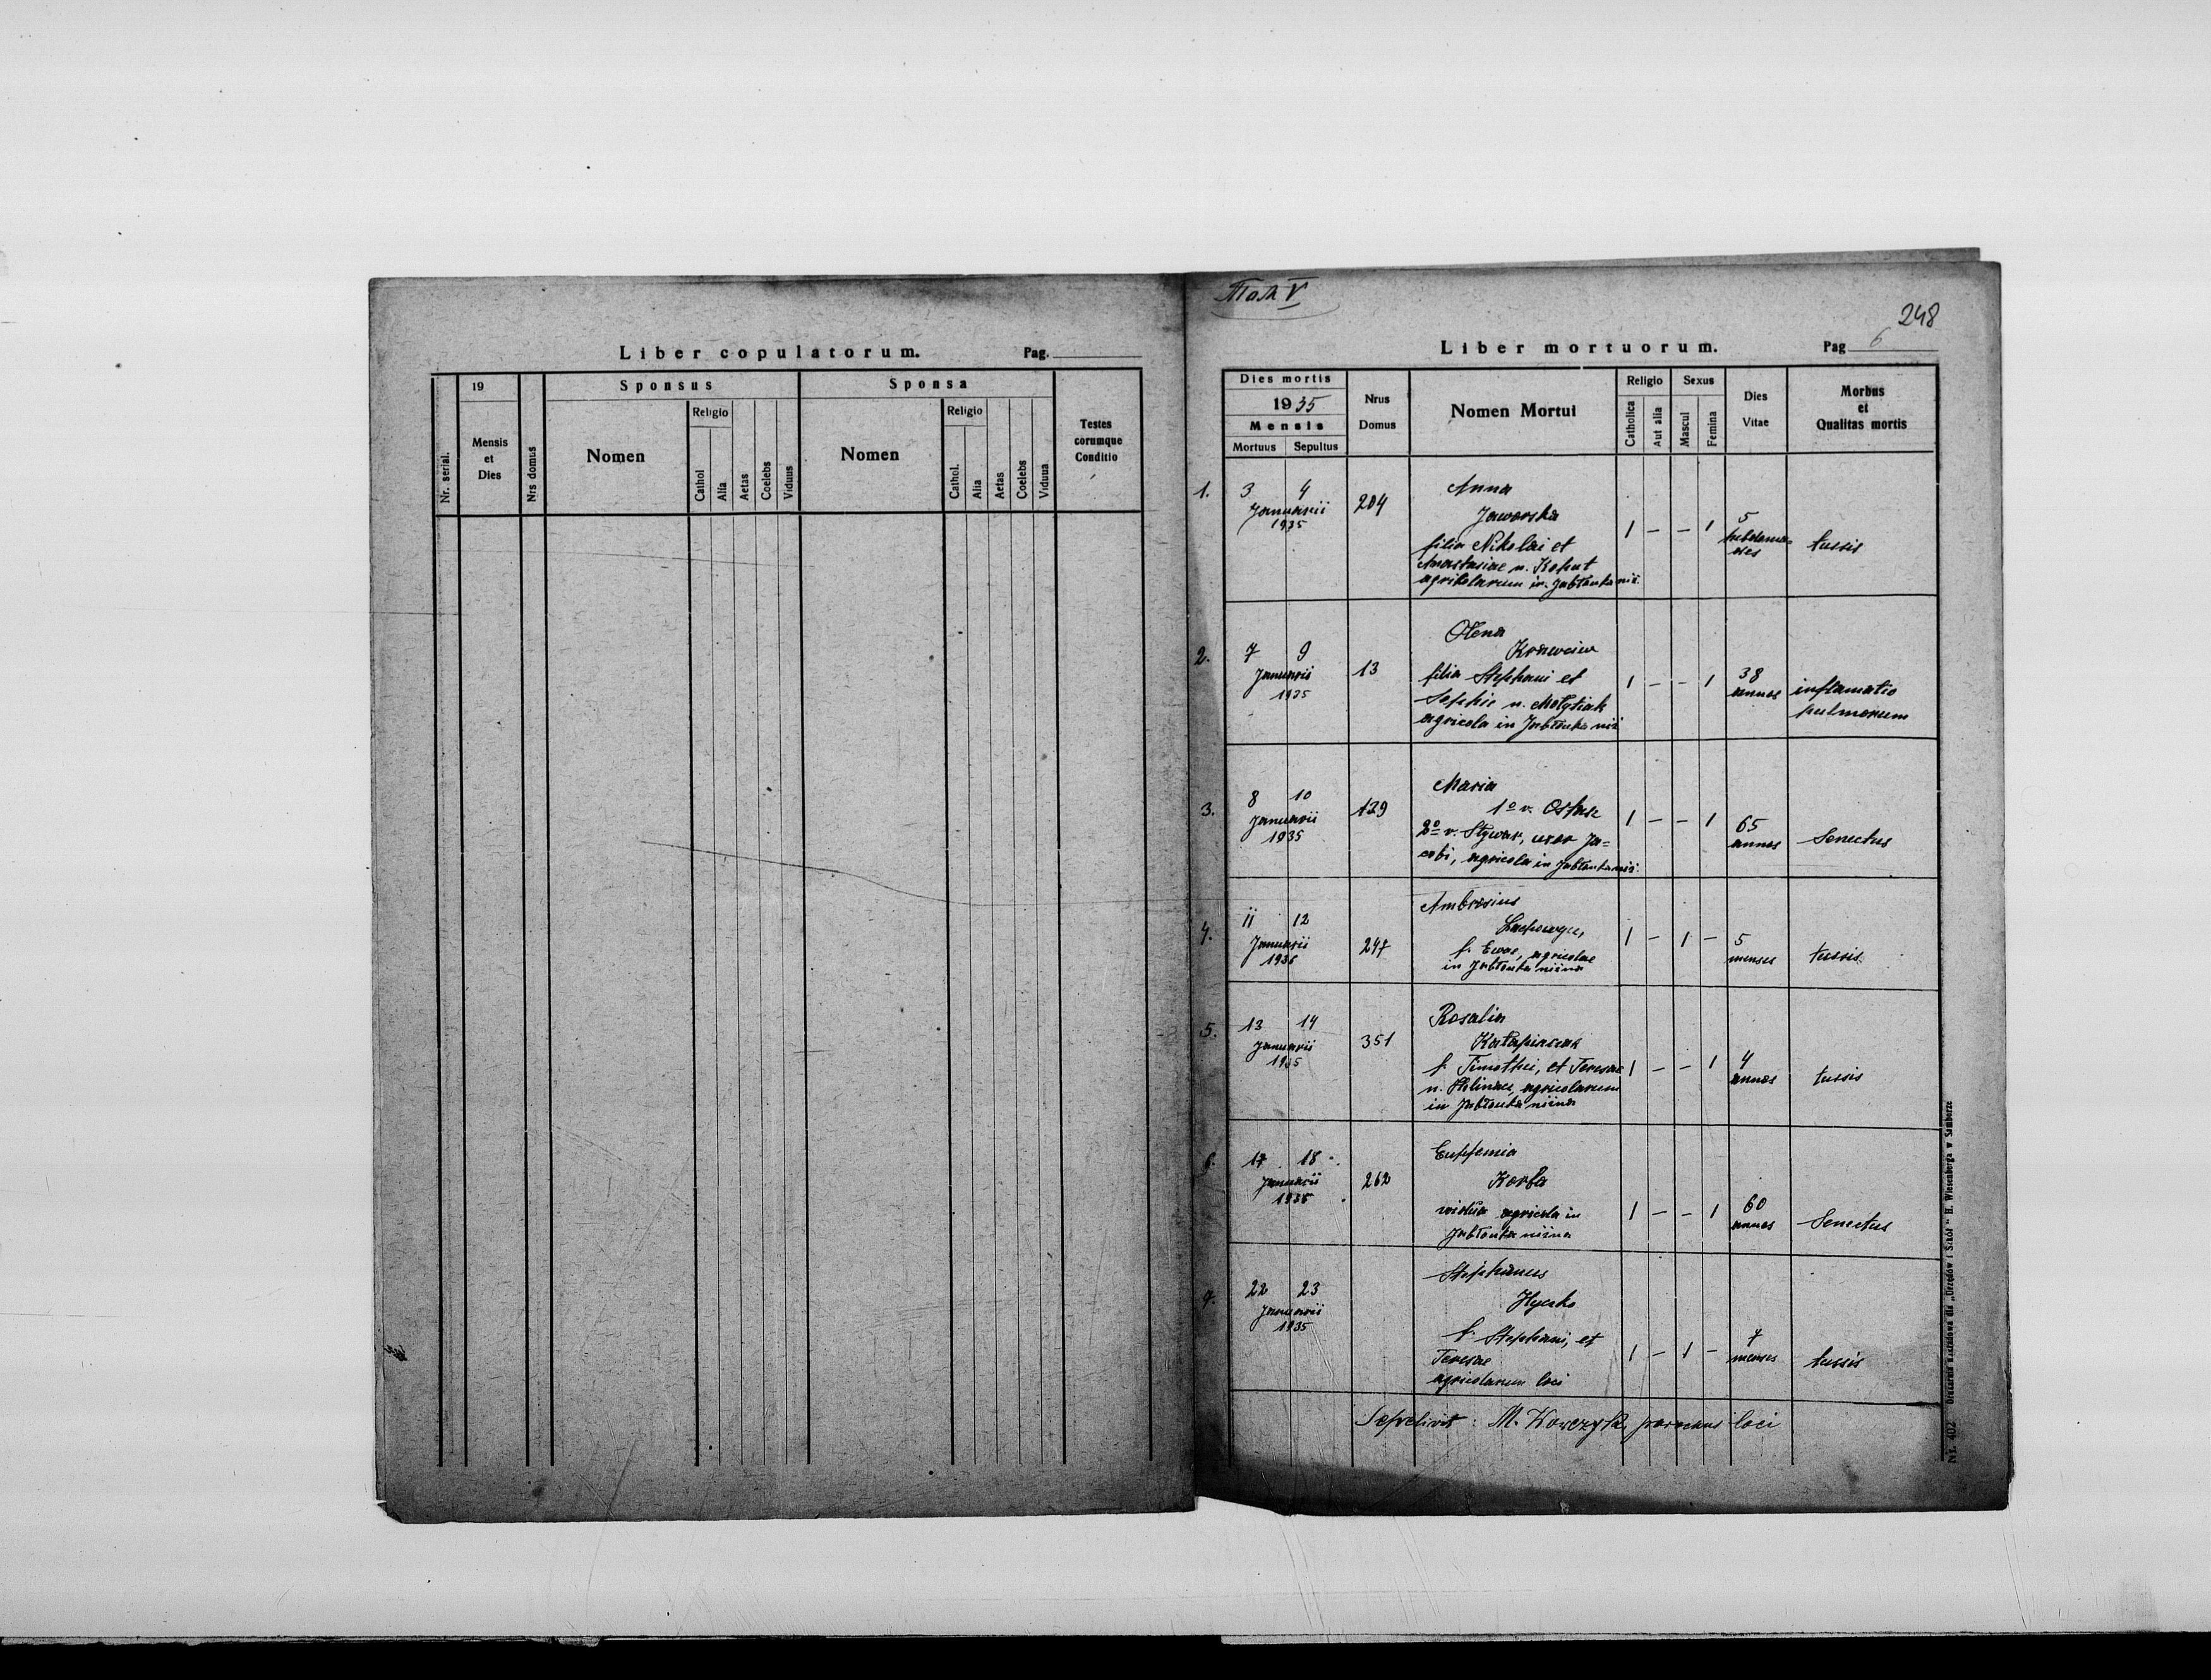 Том V
248
Liber copulatorum. Pag.
Nr. serial.
19
Mensis
et
Dies
Nrs domus
Sponsus
Nomen
Religio
Cathol
Alia
Aetas
Coelebs
Viduus
Sponsa
Nomen
Religio
Cathol.
Alia
Aetas
Coelebs
Vidua
Testes
eorumque
Conditio
Liber mortuorum. Pag 6
Dies mortis
1935
Mensis
Mortuus Sepultus
Nrus
Domus
Nomen Mortui
Religio
Catholica
Aut alia
Sexus
Mascul
Femina
Dies
Vitae
Morbus
et
Qualitas mortis
1. 3 4
Januarii
1935
204
Anna
Jaworska
filia Nikolai et
Anastasiae n. Kohut
agrikolarum in Jabłonka niż.
1 — — 1
5
tussis
2. 7 9
Januarii
1935
13
Olena
filia Stephani et
Sophie n.
agricola in Jabłonka niż
1 — — 1
38
annos
inflamatio
pulmonum
3. 8 10
Januarii
1935
139
Maria
1º v.
2º v. Stywar, uxor Ja=
cobi, agricola in Jabłonka niż.
1 — — 1
65
annos
Senectus
4. 11 12
Januarii
1935
247
Ambrosius
f. Ewae, agricolae
in Jabłonka niżna
1 — 1 —
5
menses
tussis
5. 13 14
Januarii
1935
351
Rosalia
f. Timothei, et Teresae
n. agricolarum
in Jabłonka niżna
1 — — 1
4
annos
tussis
6. 17 18
Januarii
1935
262
Eupfemia
Korba
vidua agricola in
Jabłonka niżna
1 — — 1
60
annos
Senectus
7. 22 23
Januarii
1935
Stephanus
Hyczko
f. Stephani, et
Teresae
agricolarum loci
1 — 1 —
7
menses
tussis
Sepelivit: M. parochus loci
Nr. 402 Drukarnia nakładowa dla „Urzędów i Szkół" H. Wiesenberga w Samborze